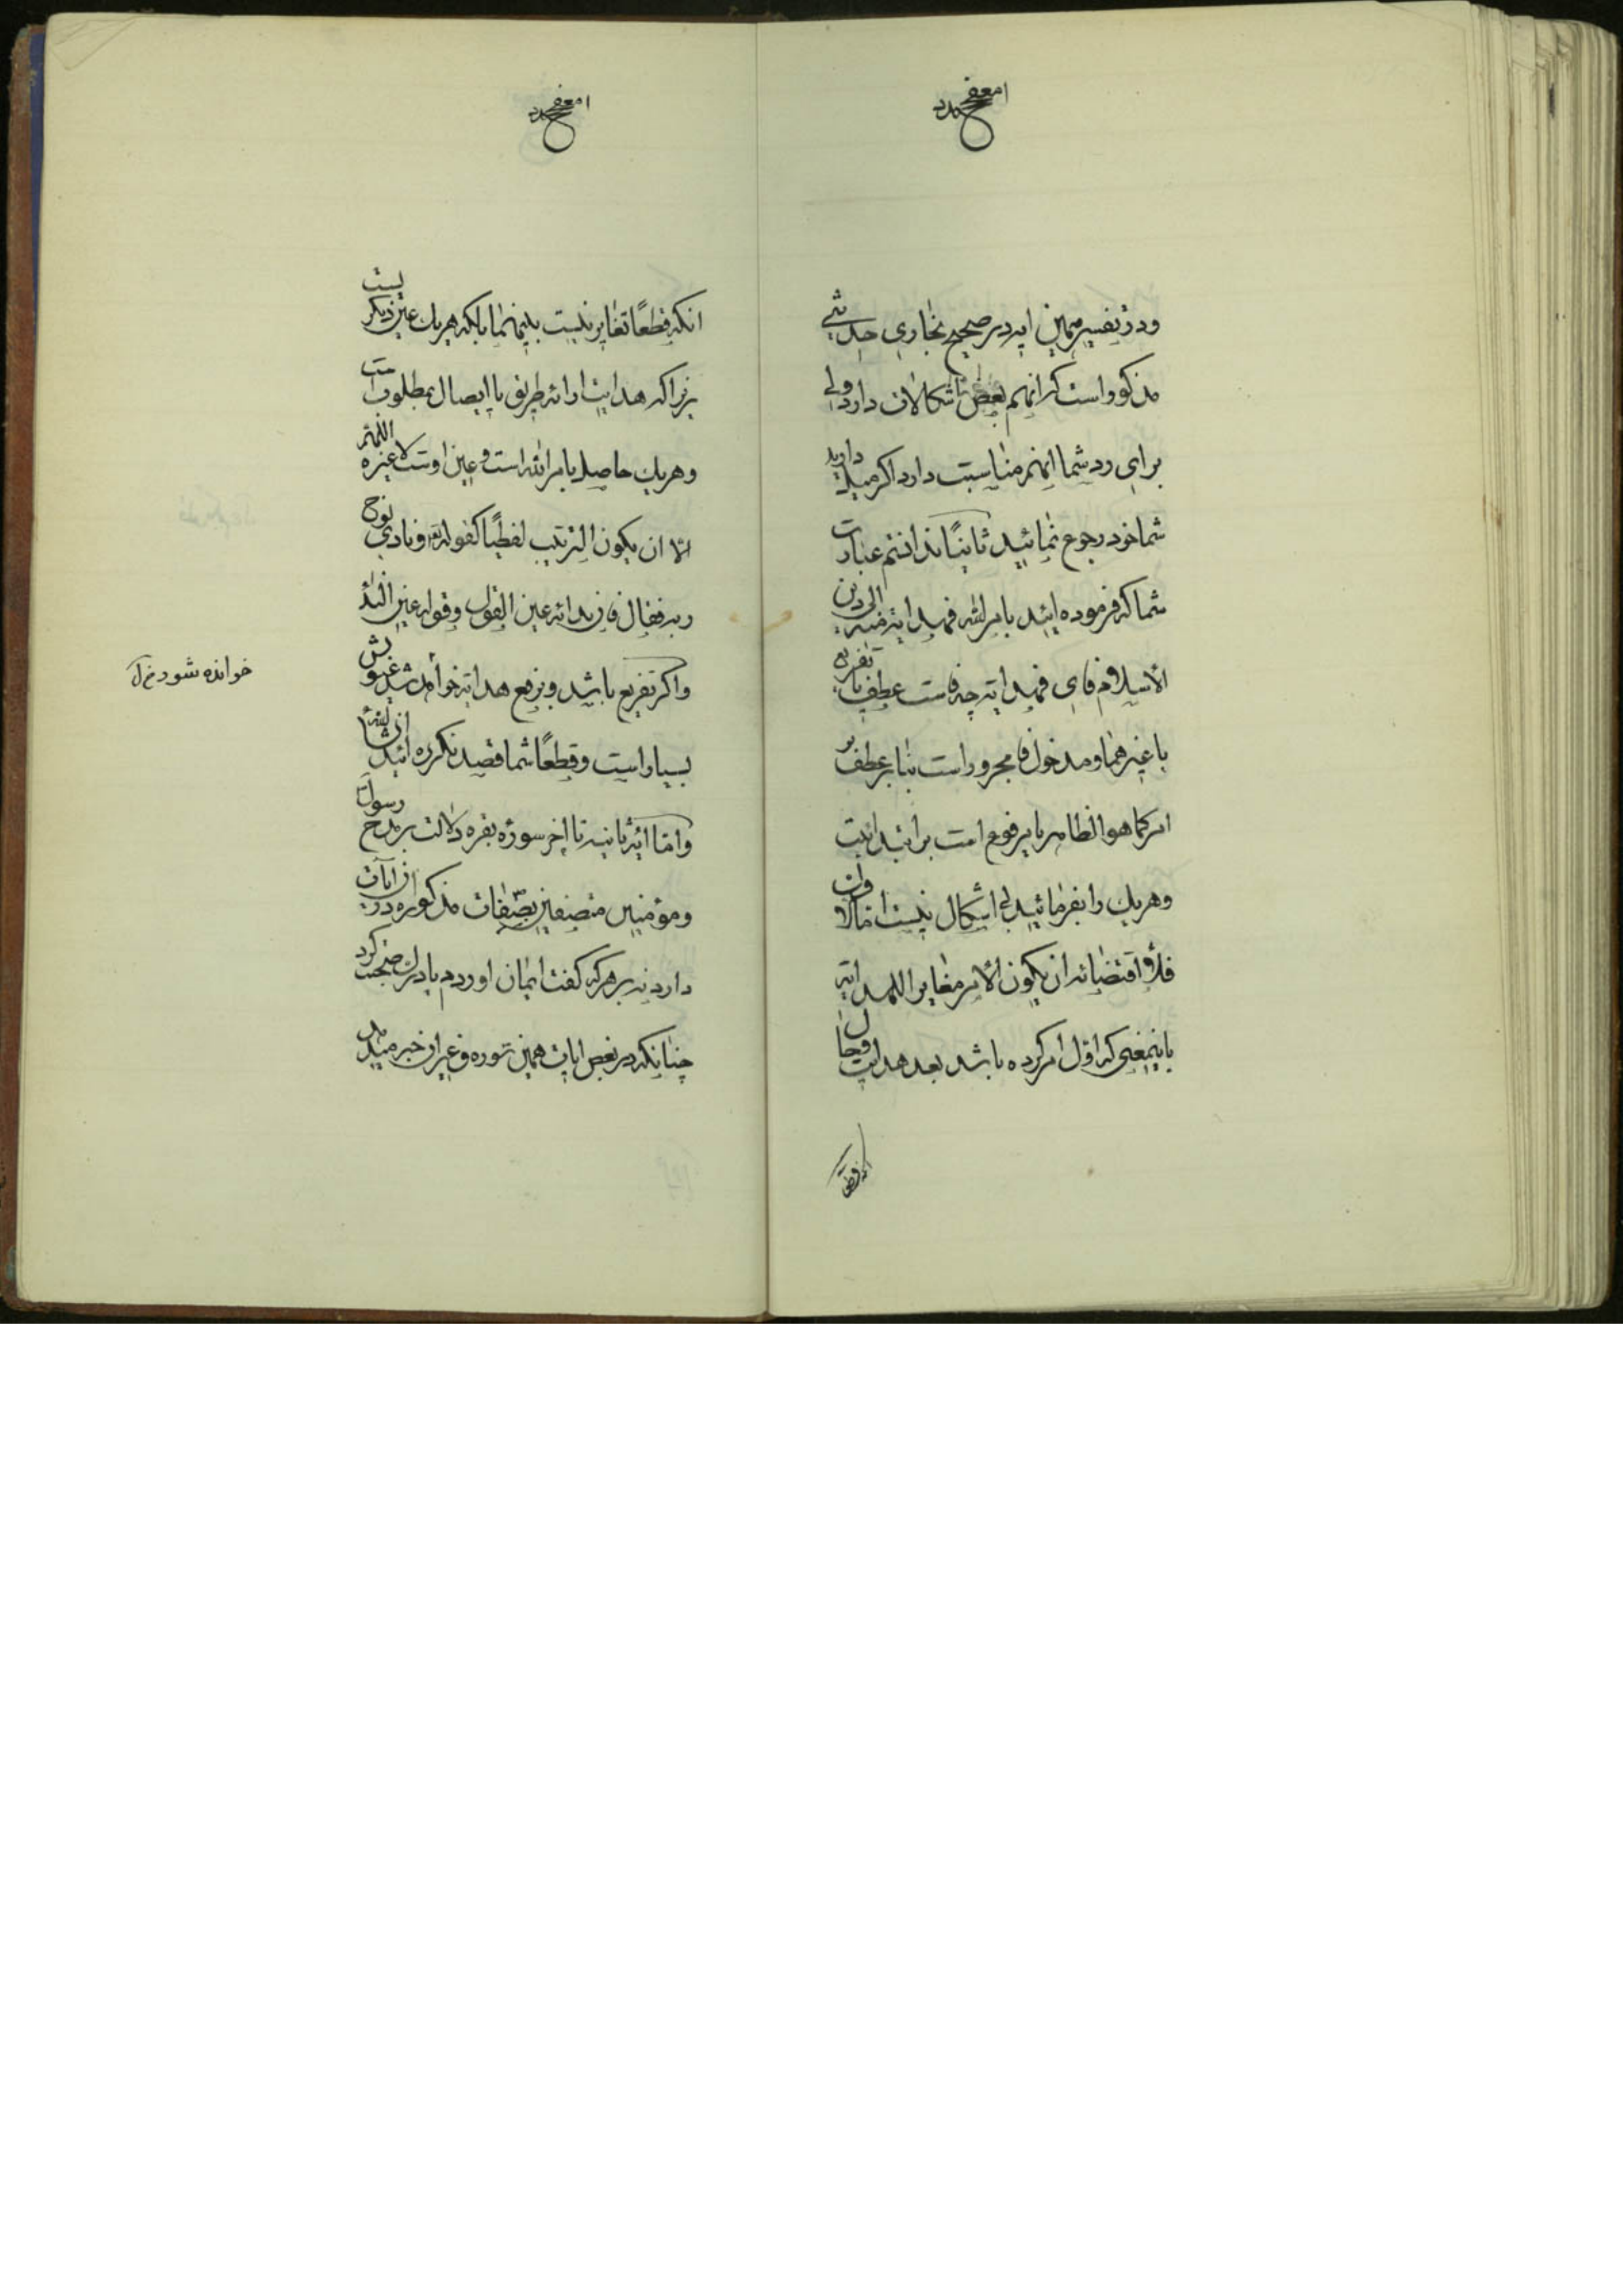 ودر تفسیر همین ایه در صحیح بخاری حدیثی
مذکور است که انهم بعض اشکالات دارد ولی
برای رد شما انهم مناسبت دارد اکر میل دارید
شما خود رجوع نمائید ثانیًا ندانستم عبارت
شما که فرموده ایند بامر الله فهدایته الی دین
الاسلام فای فهدایته چه فاست عطف یا تفریع
یا غیر هما و مدخول فا مجرور است بنابر عطف بر
امر کما هو الظاهر یا مرفوع است بر ابتدائیت
وهریك را بفرمائید بی اشکال نیست اما الاول
فلاقتضائه ان یکون الامر مغایر اللهدایته
باینمعنی که اول امر کرده باشد بعد هدایت وحال
انکه قطعًا
انکه قطعًا تغایر نیست بینهما بلکه هریك عین دیکریست
زیرا که هدایت ارائه طریق یا ایصال بمطلوب است
وهریك حاصل بامر الله است وعین اوست لا غیره اللهم
الا ان یکون الترتیب لفظیًا کقوله تع ونادی نوح
ربه فقال فان ندائه عین القول وقوله عین النداء
واکر تفریع باشد وبرفع هدایته خوانده شد غیوبش
خوانده شود
بسیار است وقطعًا شما قصد نکرده ائید انشاءالله
واما ایه ثانیه تا اخر سوره بقره دلالت بر مدح رسول
ومؤمنین متصفین بصفات مذکوره در ان ایات
دارد نه بر هرکه کفت ایمان اوردم یا درك صحبت کرد
چنانکه در بعض ایات همین سوره وغیر ان خبر میدهد